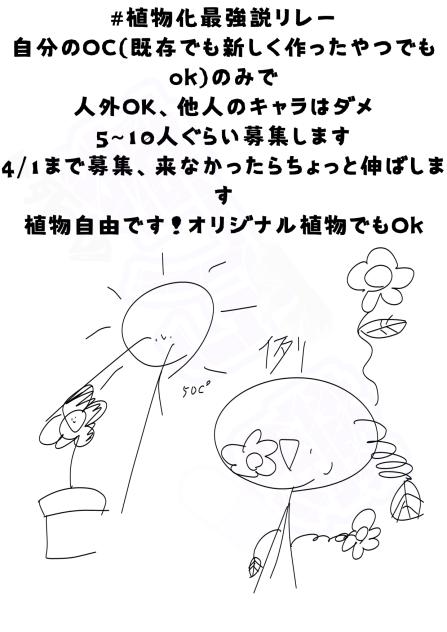 #植物化最強説リレー
自分のOC(既存でも新しく作ったやつでも
ok)のみで
人外OK、他人のキャラはダメ
5~10人ぐらい募集します
4/1まで募集、来なかったらちょっと伸ばしま
す
植物自由です！オリジナル植物でもOk
例
50c°